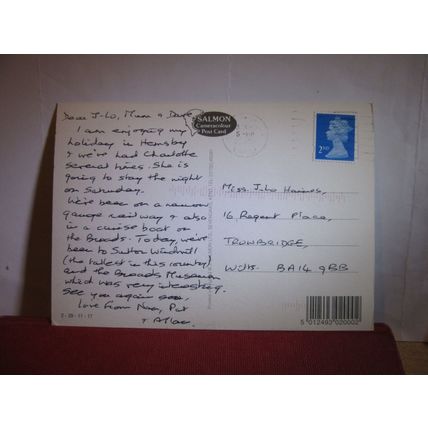 Dear J-Lo, Mum & Dad,
I am enjoying my
holiday in Hemsby
& we've had Charlotte
several times. She is
going to stay the night
on Saturday.
We've been on a narrow
gauge railway & also
in a cruise boat on
the Broads. Today, we've
been to Sutton Windmill
(the tallest in this country)
and the Broads Museum
which was very interesting.
See you again soon,
Love from Nan, Pat
SALMON
Cameracolour
Post Card
2ND
Miss. J-Lo Haines,
16, Regent Place,
TROWBRIDGE,
WILTS. BA14 9BB
2-29-11-17
5 012493 020002